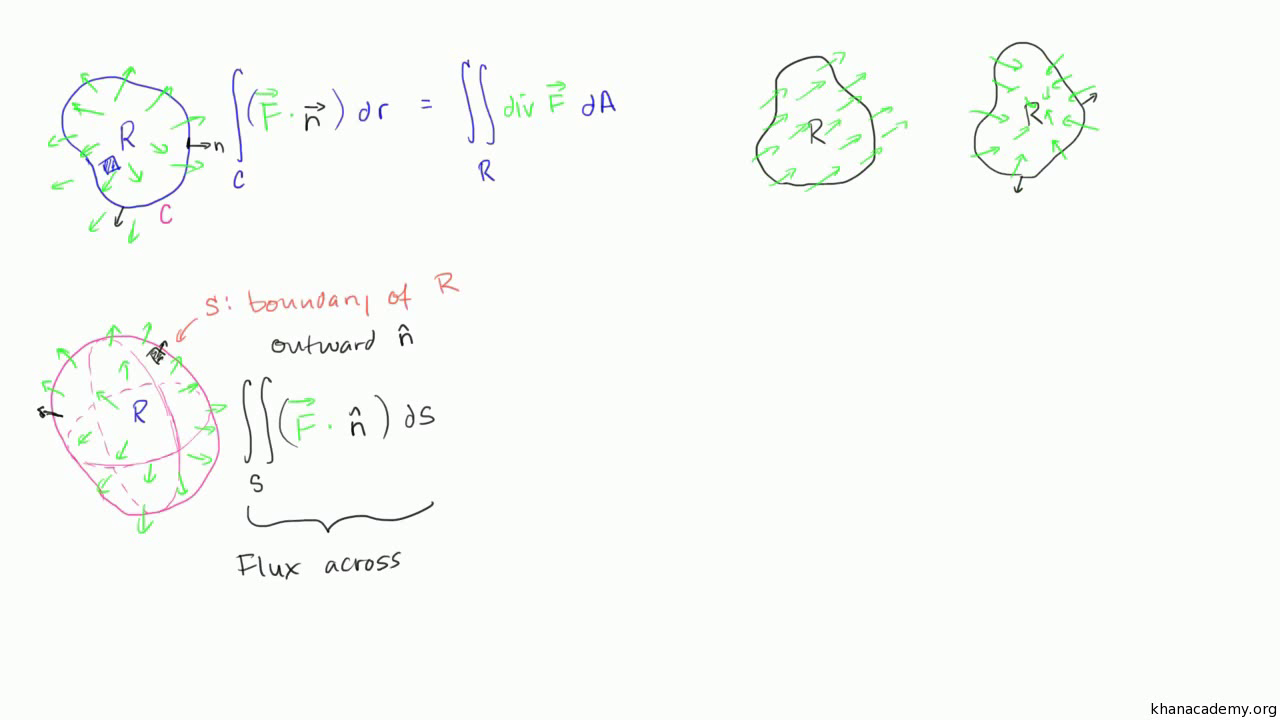 R
n
C
∫_C (F⃗ · n⃗) dr = ∬_R div F⃗ dA
R
R
S: boundary of R
outward n̂
R
∬_S (F⃗ · n̂) dS
Flux across
khanacademy.org